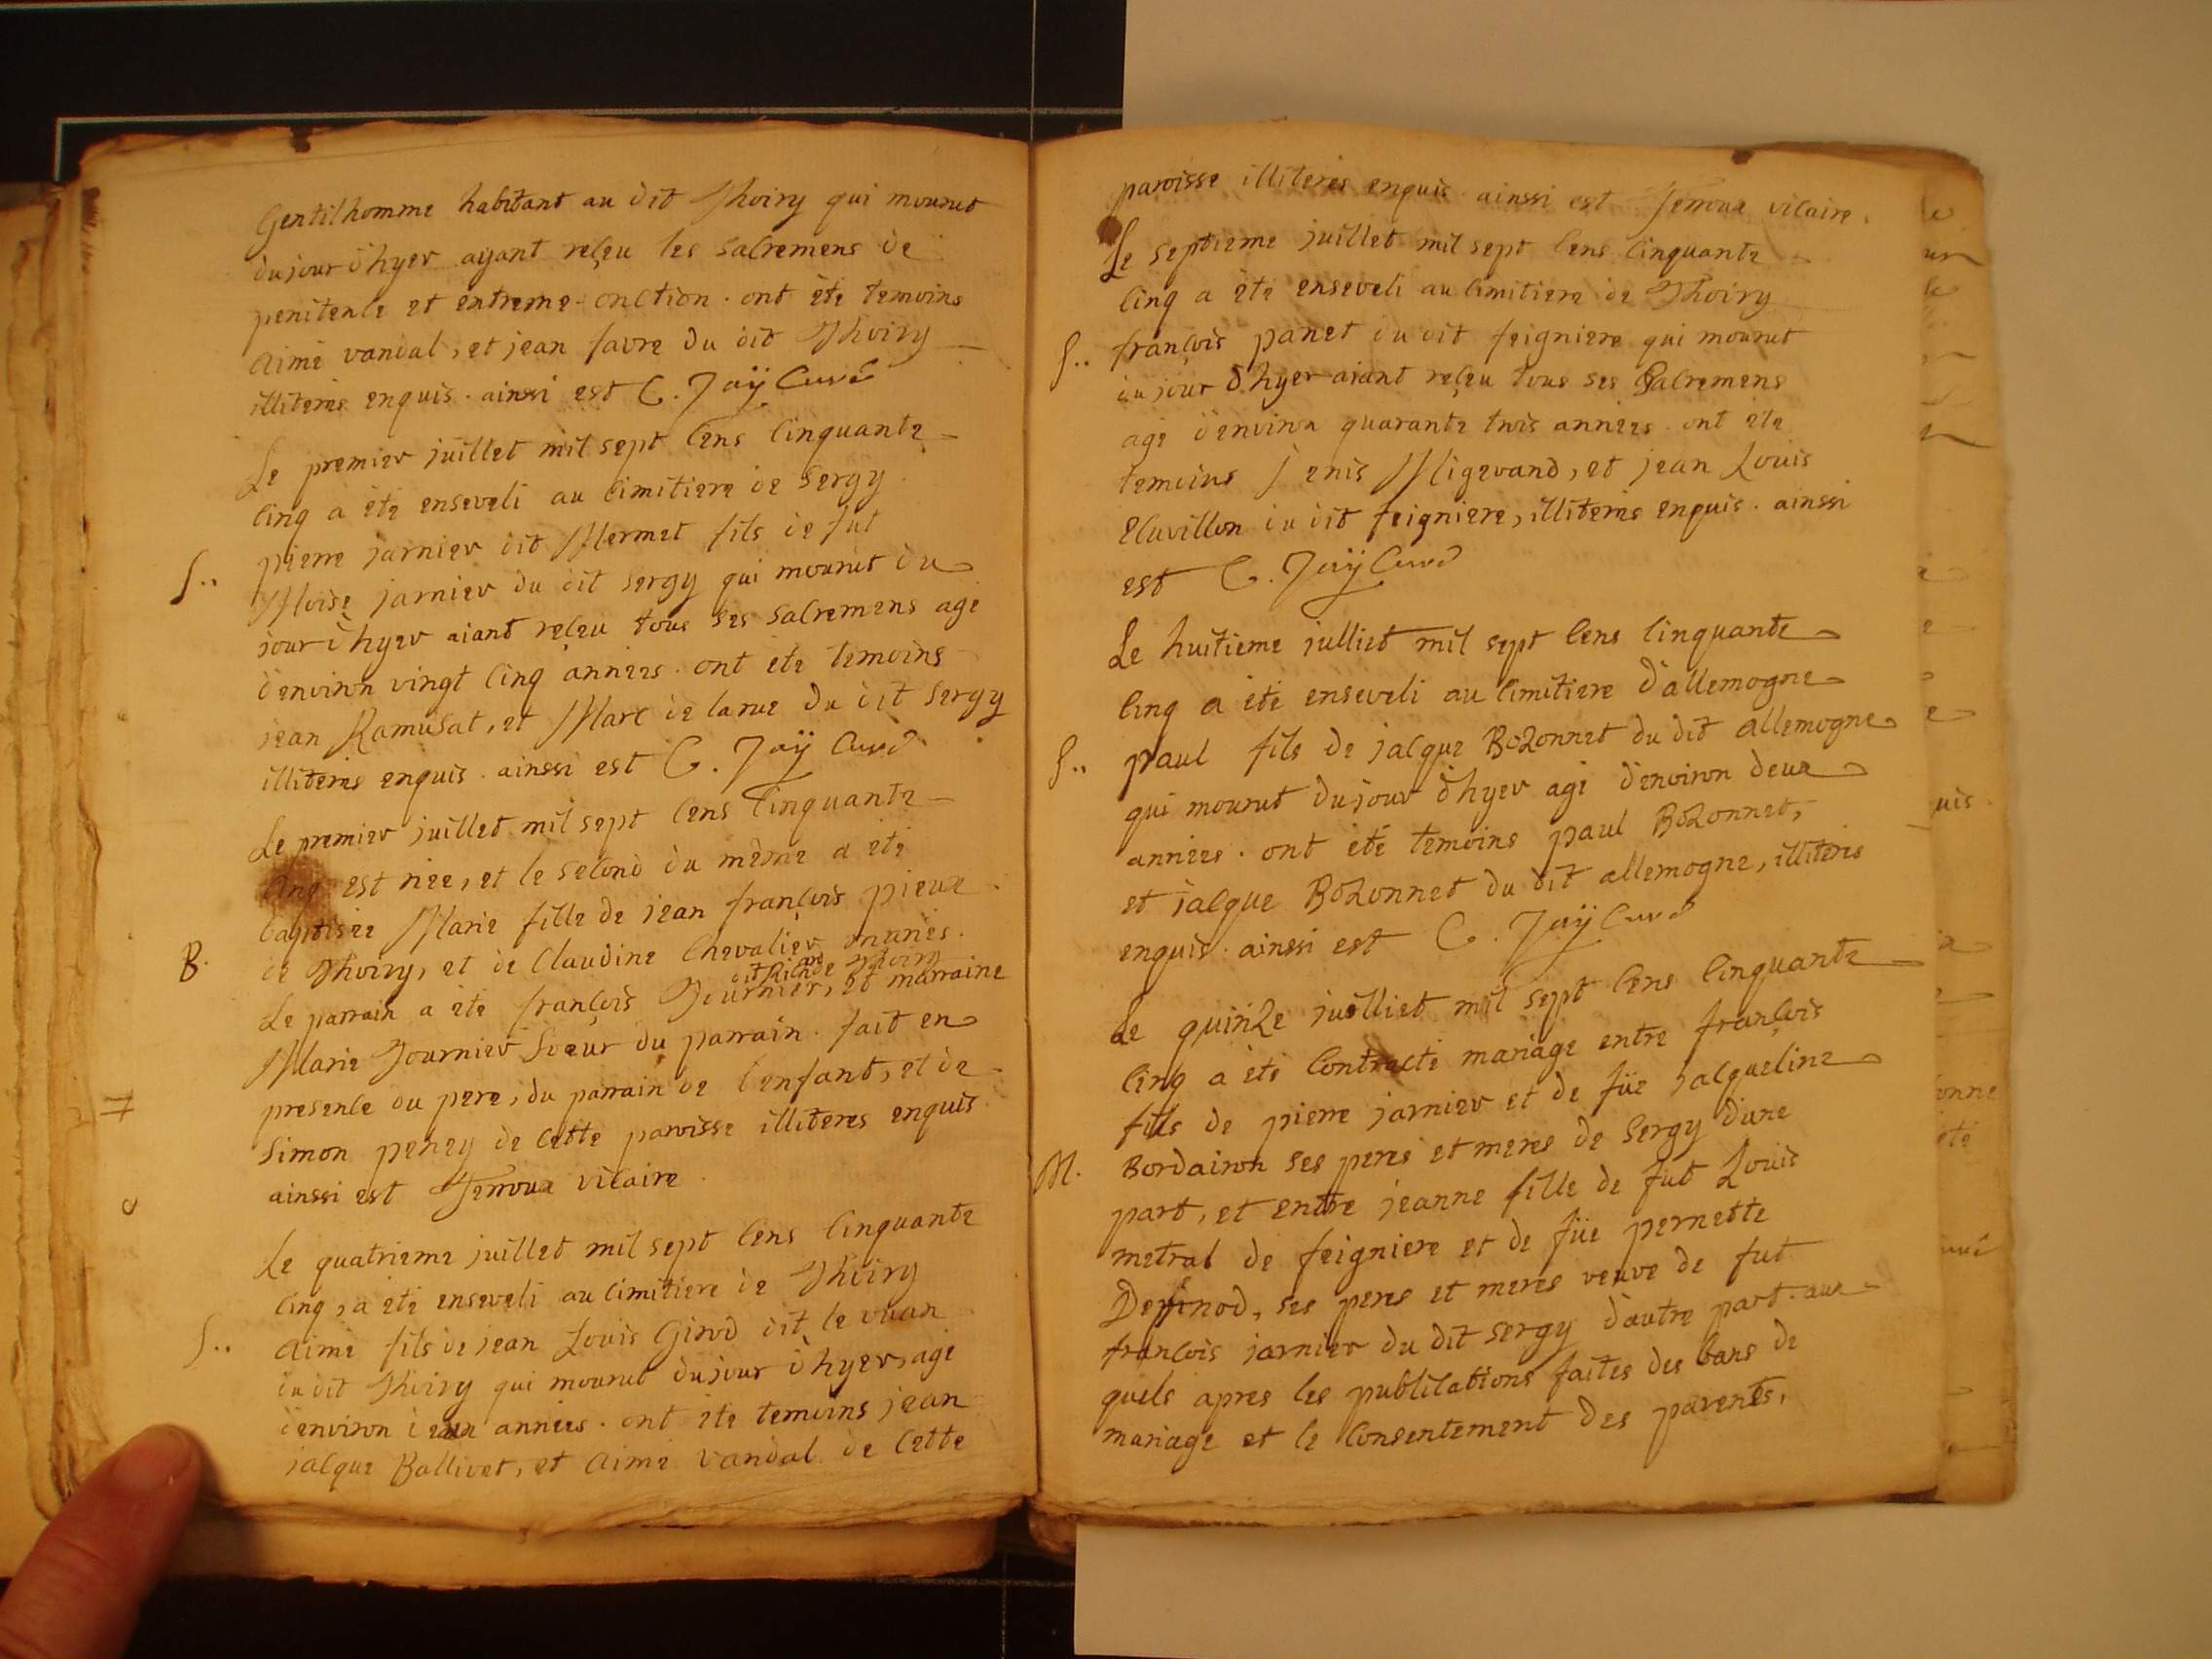 Gentilhomme habitant au dit Thoiry qui mourut
du jour d'hyer ayant reçeu les sacremens de
penitence et extreme-onction. ont été temoins
Aimé vandal, et jean favre du dit Thoiry
illiterés enquis. ainsi est C. Jaÿ Curé
Le premier juillet mil sept cens cinquante
cinq a été enseveli au cimitiere de Sergy
S.. pierre jarnier dit Mermet fils de fut
Moise jarnier du dit Sergy qui mourut du
jour d'hyer aiant reçeu tous ses sacremens agé
d'environ vingt cinq années. ont été temoins
jean Ramusat, et Marc de larue du dit Sergy
illiterés enquis. ainssi est C. Jaÿ Curé
Le premier juillet mil sept cens cinquante
cinq est née, et le second du même a été
baptisée Marie fille de jean françois pieux
B. de Thoiry, et de Claudine Chevalier mariés.
dit de Thoiry
Le parrain a été françois Journier, et marraine
Marie Journier Sœur du parrain. fait en
presence du pere, du parrain de l'enfant, et de
Simon peney de cette paroisse illiteres enquis
ainssi est Terroux vicaire.
Le quatrieme juillet mil sept cens cinquante
cinq, a été enseveli au cimitiere de Thoiry
S.. Aimé fils de jean Louis Girod dit le vuan
du dit Thoiry qui mourut du jour d'hyer, agé
d'environ deux années. ont été temoins jean
jacque Ballivet, et Aimé vandal de cette
paroisse illiterés enquis ainssi est Terroux vicaire.
Le septieme juillet mil sept cens cinquante
cinq a été enseveli au cimitiere de Thoiry
S.. françois panet du dit feigniere qui mourut
du jour d'hyer aiant reçeu tous ses Sacremens
agé d'environ quarante trois années. ont été
temoins Denis Migevand, et jean Louis
Eluvillon du dit feigniere, illiterés enquis. ainssi
est C. Jaÿ Curé
Le huitieme julliet mil sept cens cinquante
cinq a été enseveli au cimitiere d'allemogne
S.. paul fils de jacque Bozonnet du dit allemogne
qui mourut du jour d'hyer agé d'environ deux
années. ont été temoins paul Bozonnet,
et jacque Bozonnet du dit allemogne, illiterés
enquis. ainssi est C. Jaÿ Curé
Le quinze juilliet mil sept cens cinquante
cinq a été Contracté mariage entre françois
fils de pierre jarnier et de füe jacqueline
M. Bordairon ses peres et meres de Sergy d'une
part, et entre jeanne fille de fut Louis
metral de feigniere et de füe pernette
ses peres et meres veuve de fut
françois jarnier du dit Sergy d'autre part. aux
quels apres les publications faites des bans de
mariage et le Consentement des parents,